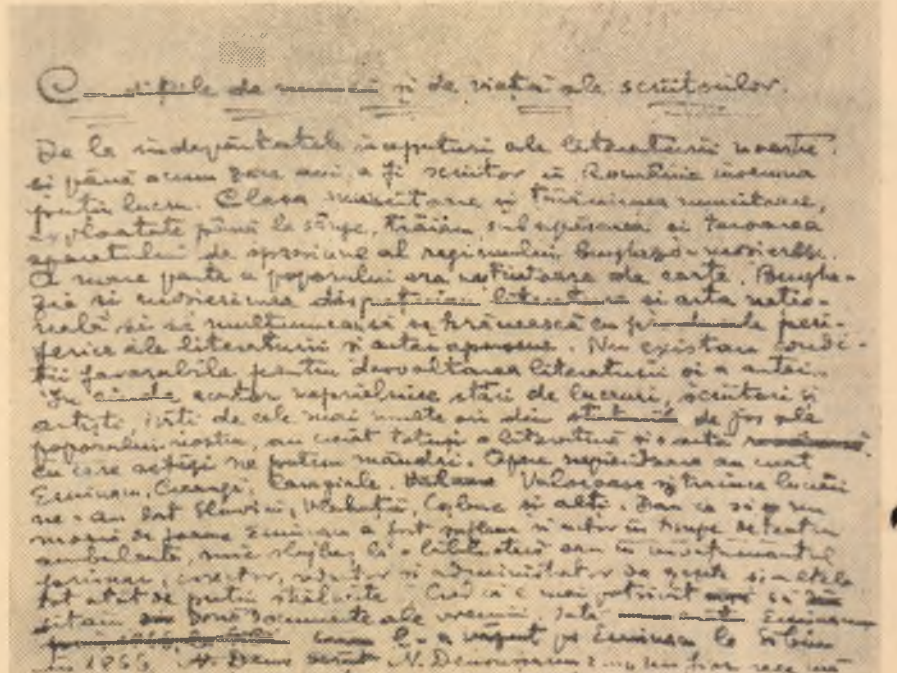 Condițiile de muncă și de viață ale scriitorilor.
De la îndepărtatele începuturi ale literaturii noastre
și până acum zece ani, a fi scriitor în România însemna
puțin lucru. Clasa muncitoare și țărănimea muncitoare,
exploatate până la sânge, trăiau sub apăsarea și teroarea
aparatului de opresiune al regimului burghezo-moșieresc.
O mare parte a poporului era neștiutoare de carte. Burghe-
zia și moșierimea disprețuiau literatura și arta națio-
nală și se mulțumeau să se hrănească cu produsele peri-
ferice ale literaturii și artei apusene. Nu existau condi-
ții favorabile pentru dezvoltarea literaturii și a artei.
În ciuda acestor neprielnice stări de lucruri, scriitori și
artiști, ieșiți de cele mai multe ori din straturile de jos ale
poporului nostru, au creat totuși o literatură și o artă
cu care astăzi ne putem mândri. Opere nepieritoare au creat
Eminescu, Creangă, Caragiale. Valoroase și trainice lucrări
ne-au dat Slavici, Vlahuță, Coșbuc și alți. Dar ca să nu
moară de foame Eminescu a fost sufleur și actor în trupe de teatru
ambulante, mic slujbaș la o bibliotecă sau în învățământul
, corector, redactor și administrator de gazete și altele
tot atât de puțin strălucite. Cred că e mai potrivit să
cităm două documente ale vremii. Iată Eminescu
l-a văzut pe Eminescu la Sibiu
în 1866. N. Densușianu